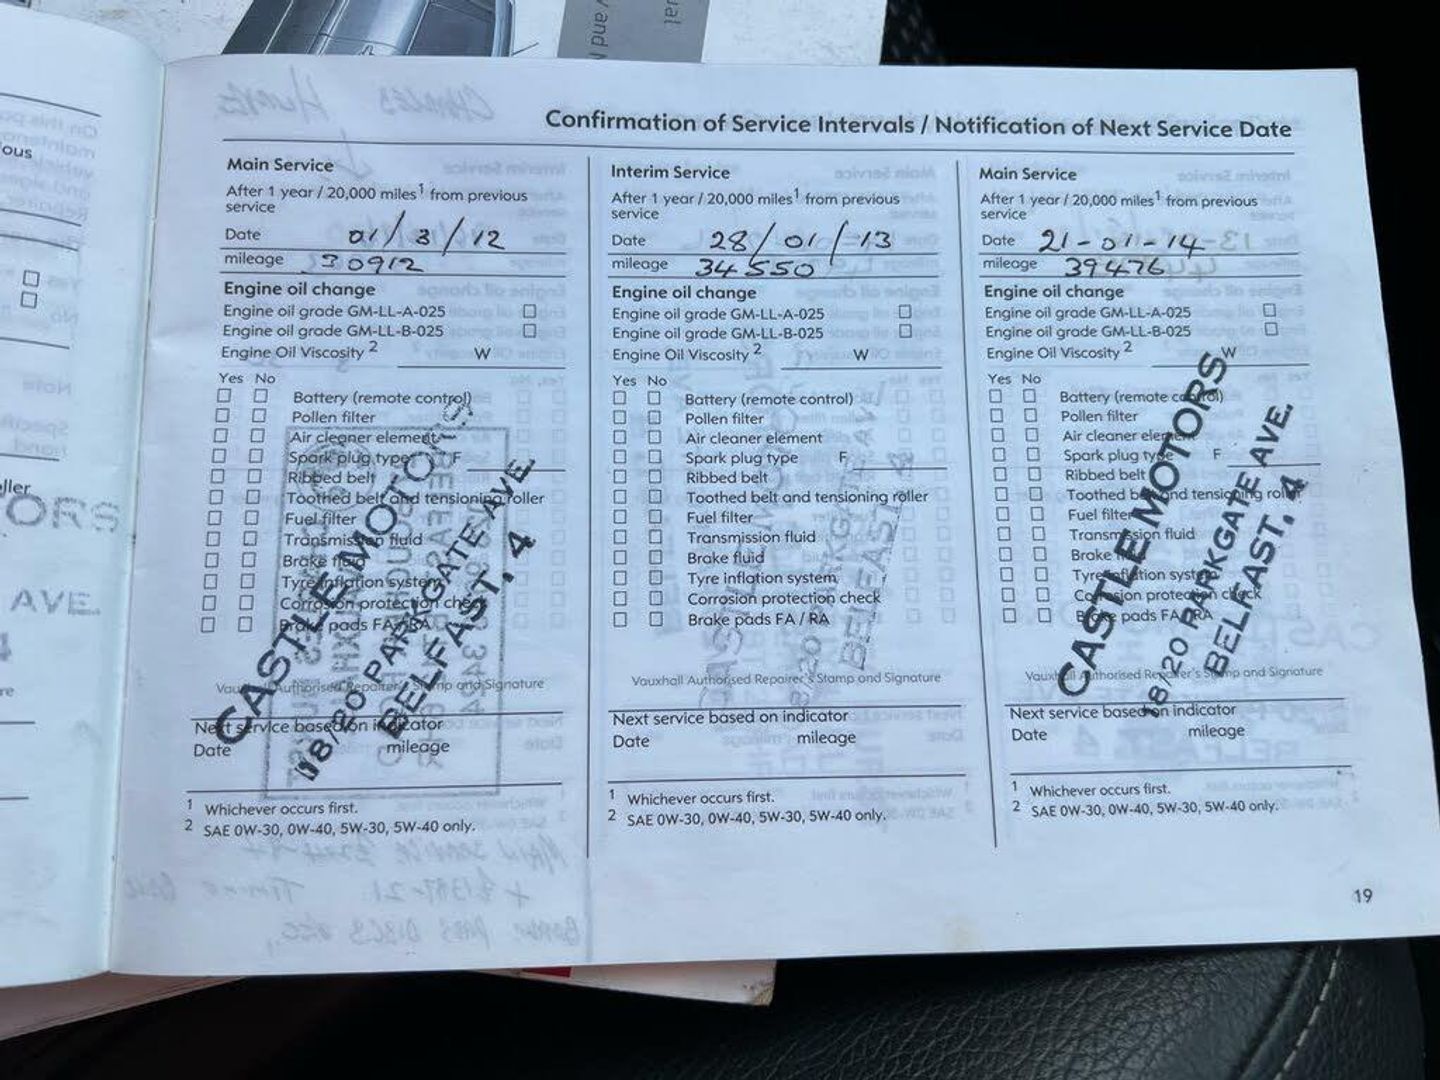 ual
y and M
On this pa
ous
Yes
No
Note
eller
ORS
AVE.
4
re
Confirmation of Service Intervals / Notification of Next Service Date
Main Service
After 1 year / 20,000 miles1 from previous
service
Date 01/3/12
mileage 30912
Engine oil change
Engine oil grade GM-LL-A-025
Engine oil grade GM-LL-B-025
Engine Oil Viscosity 2 W
Yes No
Battery (remote control)
Pollen filter
Air cleaner element
Spark plug type F
Ribbed belt
Toothed belt and tensioning roller
Fuel filter
Transmission fluid
Brake fluid
Tyre inflation system
Corrosion protection check
Brake pads FA / RA
CASTLE MOTORS
18/20 PARKGATE AVE
BELFAST. 4
Vauxhall Authorised Repairer's Stamp and Signature
Next service based on indicator
Date mileage
1 Whichever occurs first.
2 SAE 0W-30, 0W-40, 5W-30, 5W-40 only.
Interim Service
After 1 year / 20,000 miles1 from previous
service
Date 28/01/13
mileage 34550
Engine oil change
Engine oil grade GM-LL-A-025
Engine oil grade GM-LL-B-025
Engine Oil Viscosity 2 W
Yes No
Battery (remote control)
Pollen filter
Air cleaner element
Spark plug type F
Ribbed belt
Toothed belt and tensioning roller
Fuel filter
Transmission fluid
Brake fluid
Tyre inflation system
Corrosion protection check
Brake pads FA / RA
18/20 PARKGATE AV
BELFAST 4
Vauxhall Authorised Repairer's Stamp and Signature
Next service based on indicator
Date mileage
1 Whichever occurs first.
2 SAE 0W-30, 0W-40, 5W-30, 5W-40 only.
Main Service
After 1 year / 20,000 miles1 from previous
service
Date 21-01-14
mileage 39476
Engine oil change
Engine oil grade GM-LL-A-025
Engine oil grade GM-LL-B-025
Engine Oil Viscosity 2 W
Yes No
Battery (remote control)
Pollen filter
Air cleaner element
Spark plug type F
Ribbed belt
Toothed belt and tensioning roller
Fuel filter
Transmission fluid
Brake fluid
Tyre inflation system
Corrosion protection check
Brake pads FA / RA
CASTLE MOTORS
18/20 PARKGATE AVE.
BELFAST. 4
Vauxhall Authorised Repairer's Stamp and Signature
Next service based on indicator
Date mileage
1 Whichever occurs first.
2 SAE 0W-30, 0W-40, 5W-30, 5W-40 only.
19